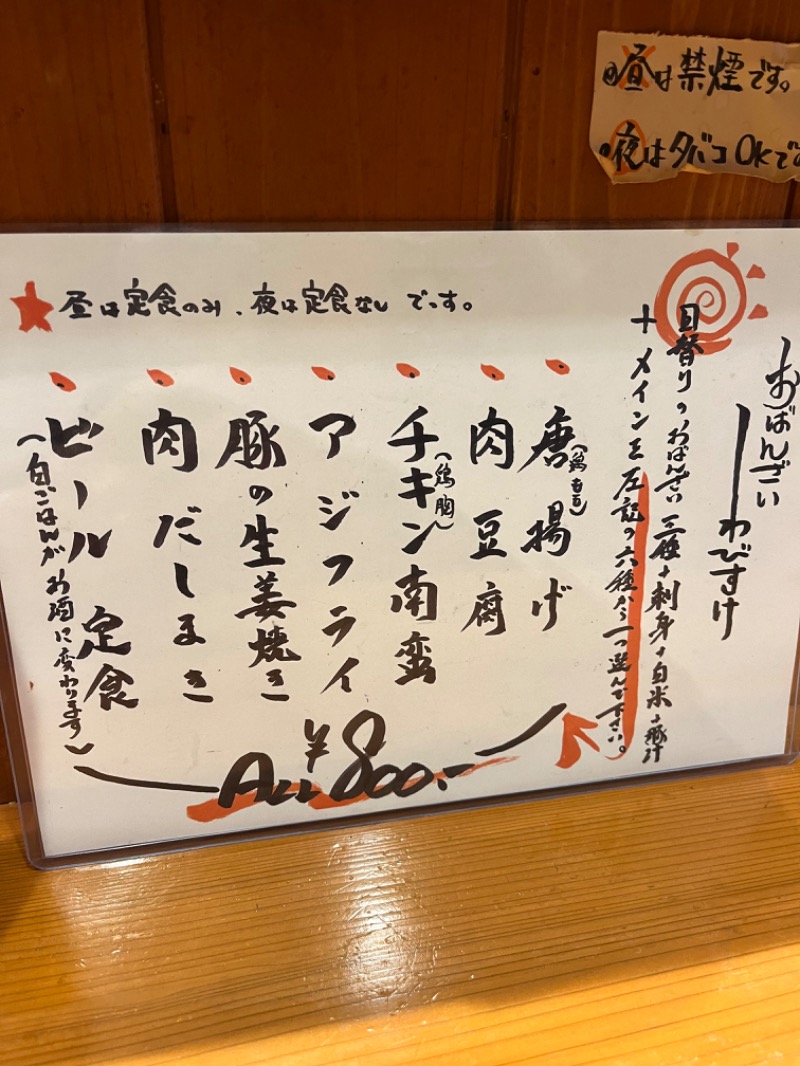 昼は禁煙です。
夜はタバコOKで
おばんざい
わびすけ
日替りのおばんざい三種+刺身+白米+豚汁
+メインを左記の六種から一つ選んで下さい。
唐揚げ
(鶏もも)
肉豆腐
チキン南蛮
(鶏胸)
アジフライ
豚の生姜焼き
肉だしまき
ビール定食
(白ごはんがお酒に変わります)
ALL ¥800.-
★昼は定食のみ、夜は定食なしでっす。